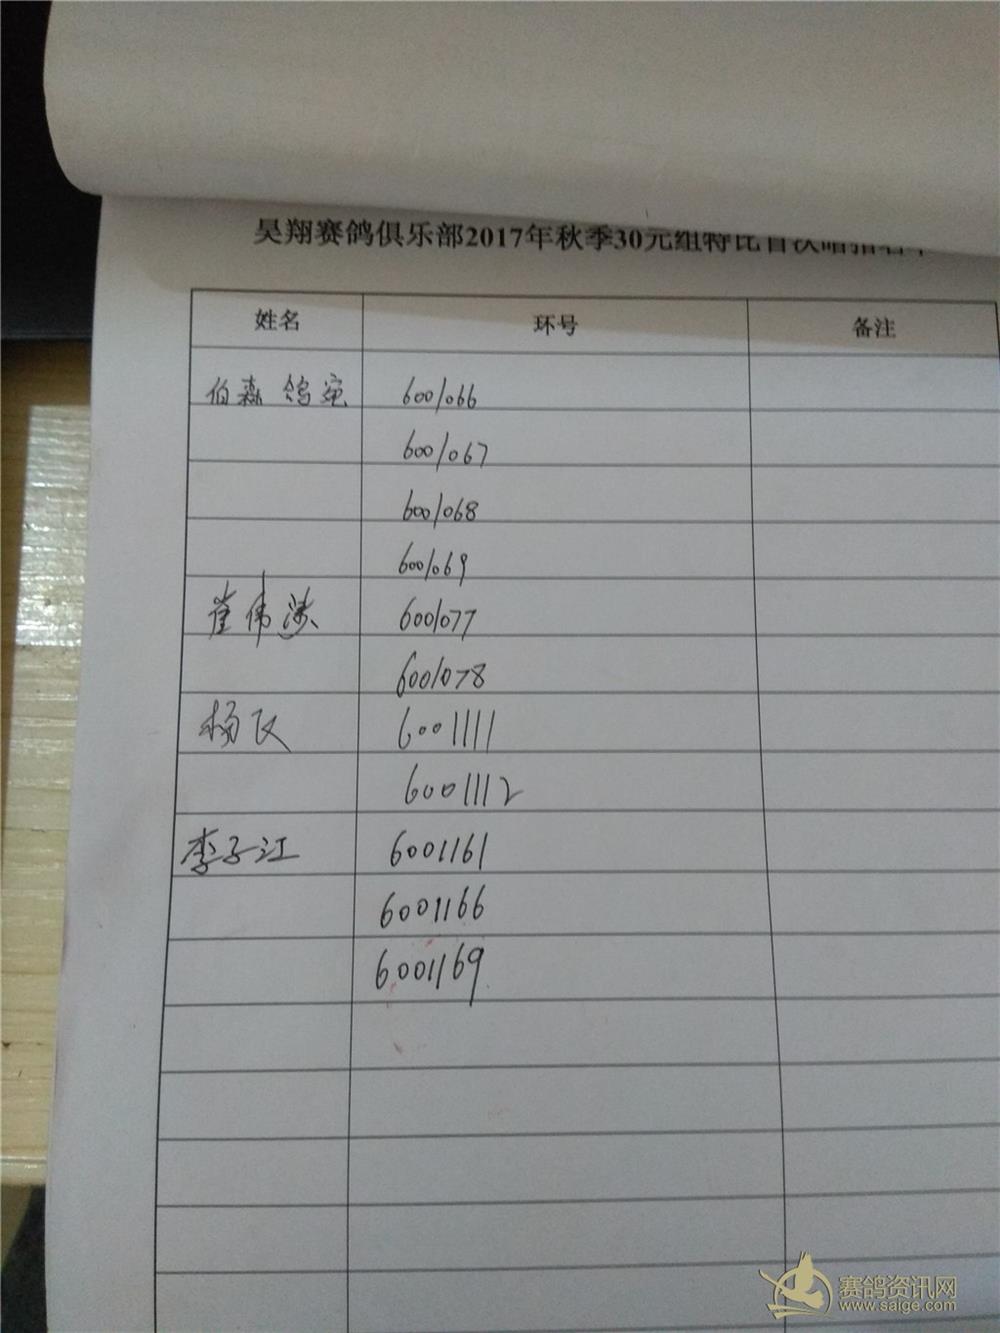 昊翔赛鸽俱乐部2017年秋季30元组特比首次暗指名单
姓名 环号 备注
伯森鸽苑 6001066
6001067
6001068
6001069
崔伟 6001077
6001078
杨 6001111
6001112
李子江 6001161
6001166
6001169
赛鸽资讯网
www.saige.com